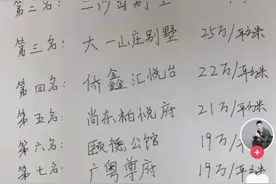 第二名：二沙岛别墅
第三名：大一山庄别墅 25万/平方米
第四名：侨鑫汇悦台 22万/平方米
第五名：尚东柏悦府 21万/平方米
第六名：颐德公馆 19万/平方米
第七名：广粤尊府 19万/平方米